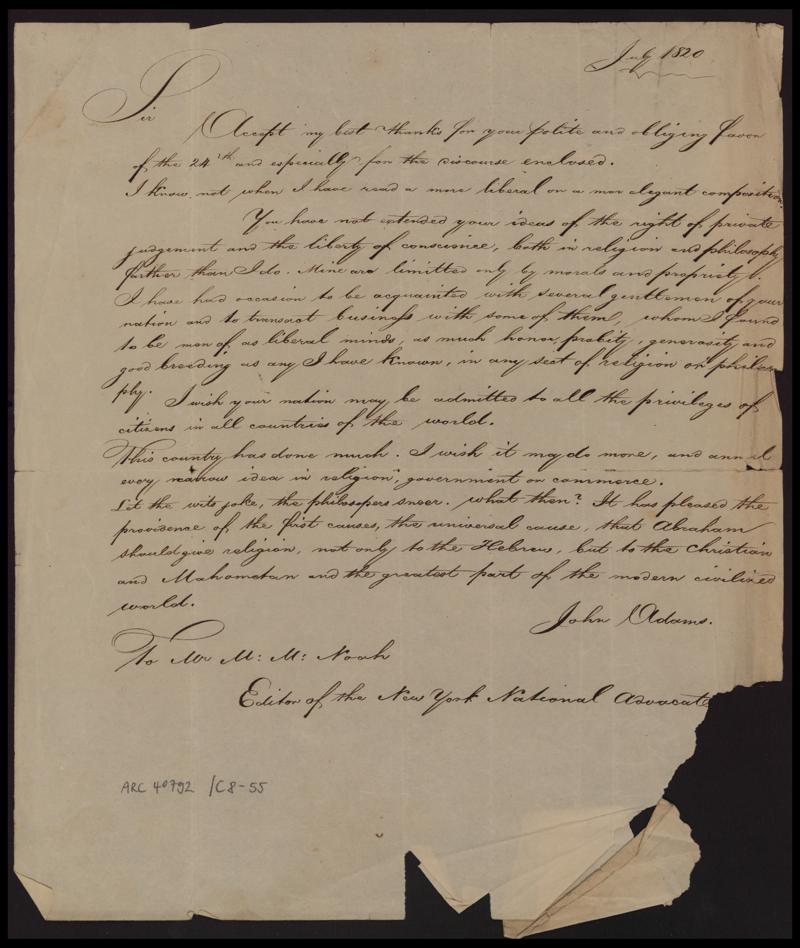 July 1820
Sir
Accept my best thanks for your polite and obliging favor
of the 24th and especially for the discourse enclosed.
I know not when I have read a more liberal or a mor elegant composition.
You have not extended your ideas of the right of private
judgement and the liberty of conscience, both in religion and philosophy
further than I do. Mine are limitted only by morals and propriety.
I have had occasion to be acquainted with several gentlemen of your
nation and to transact business with some of them, whom I found
to be men of as liberal minds, as much honor, probity, generosity and
good breeding as any I have known, in any sect of religion or philoso
phy.
I wish your nation may be admitted to all the privileges of
citizens in all countries of the world.
This country has done much. I wish it may do more, and annul
every narrow idea in religion, government or commerce.
Let the wits joke, the philosopers sneer. what then? It has pleased the
providence of the first causes, the universal cause, that Abraham
should give religion, not only to the Hebrew, but to the Christian
and Mahometan and the greatest part of the modern civilized
world.
John Adams.
To Mr M: M: Noah
Editor of the New York National Advocate
ARC 4*792 /C8-55